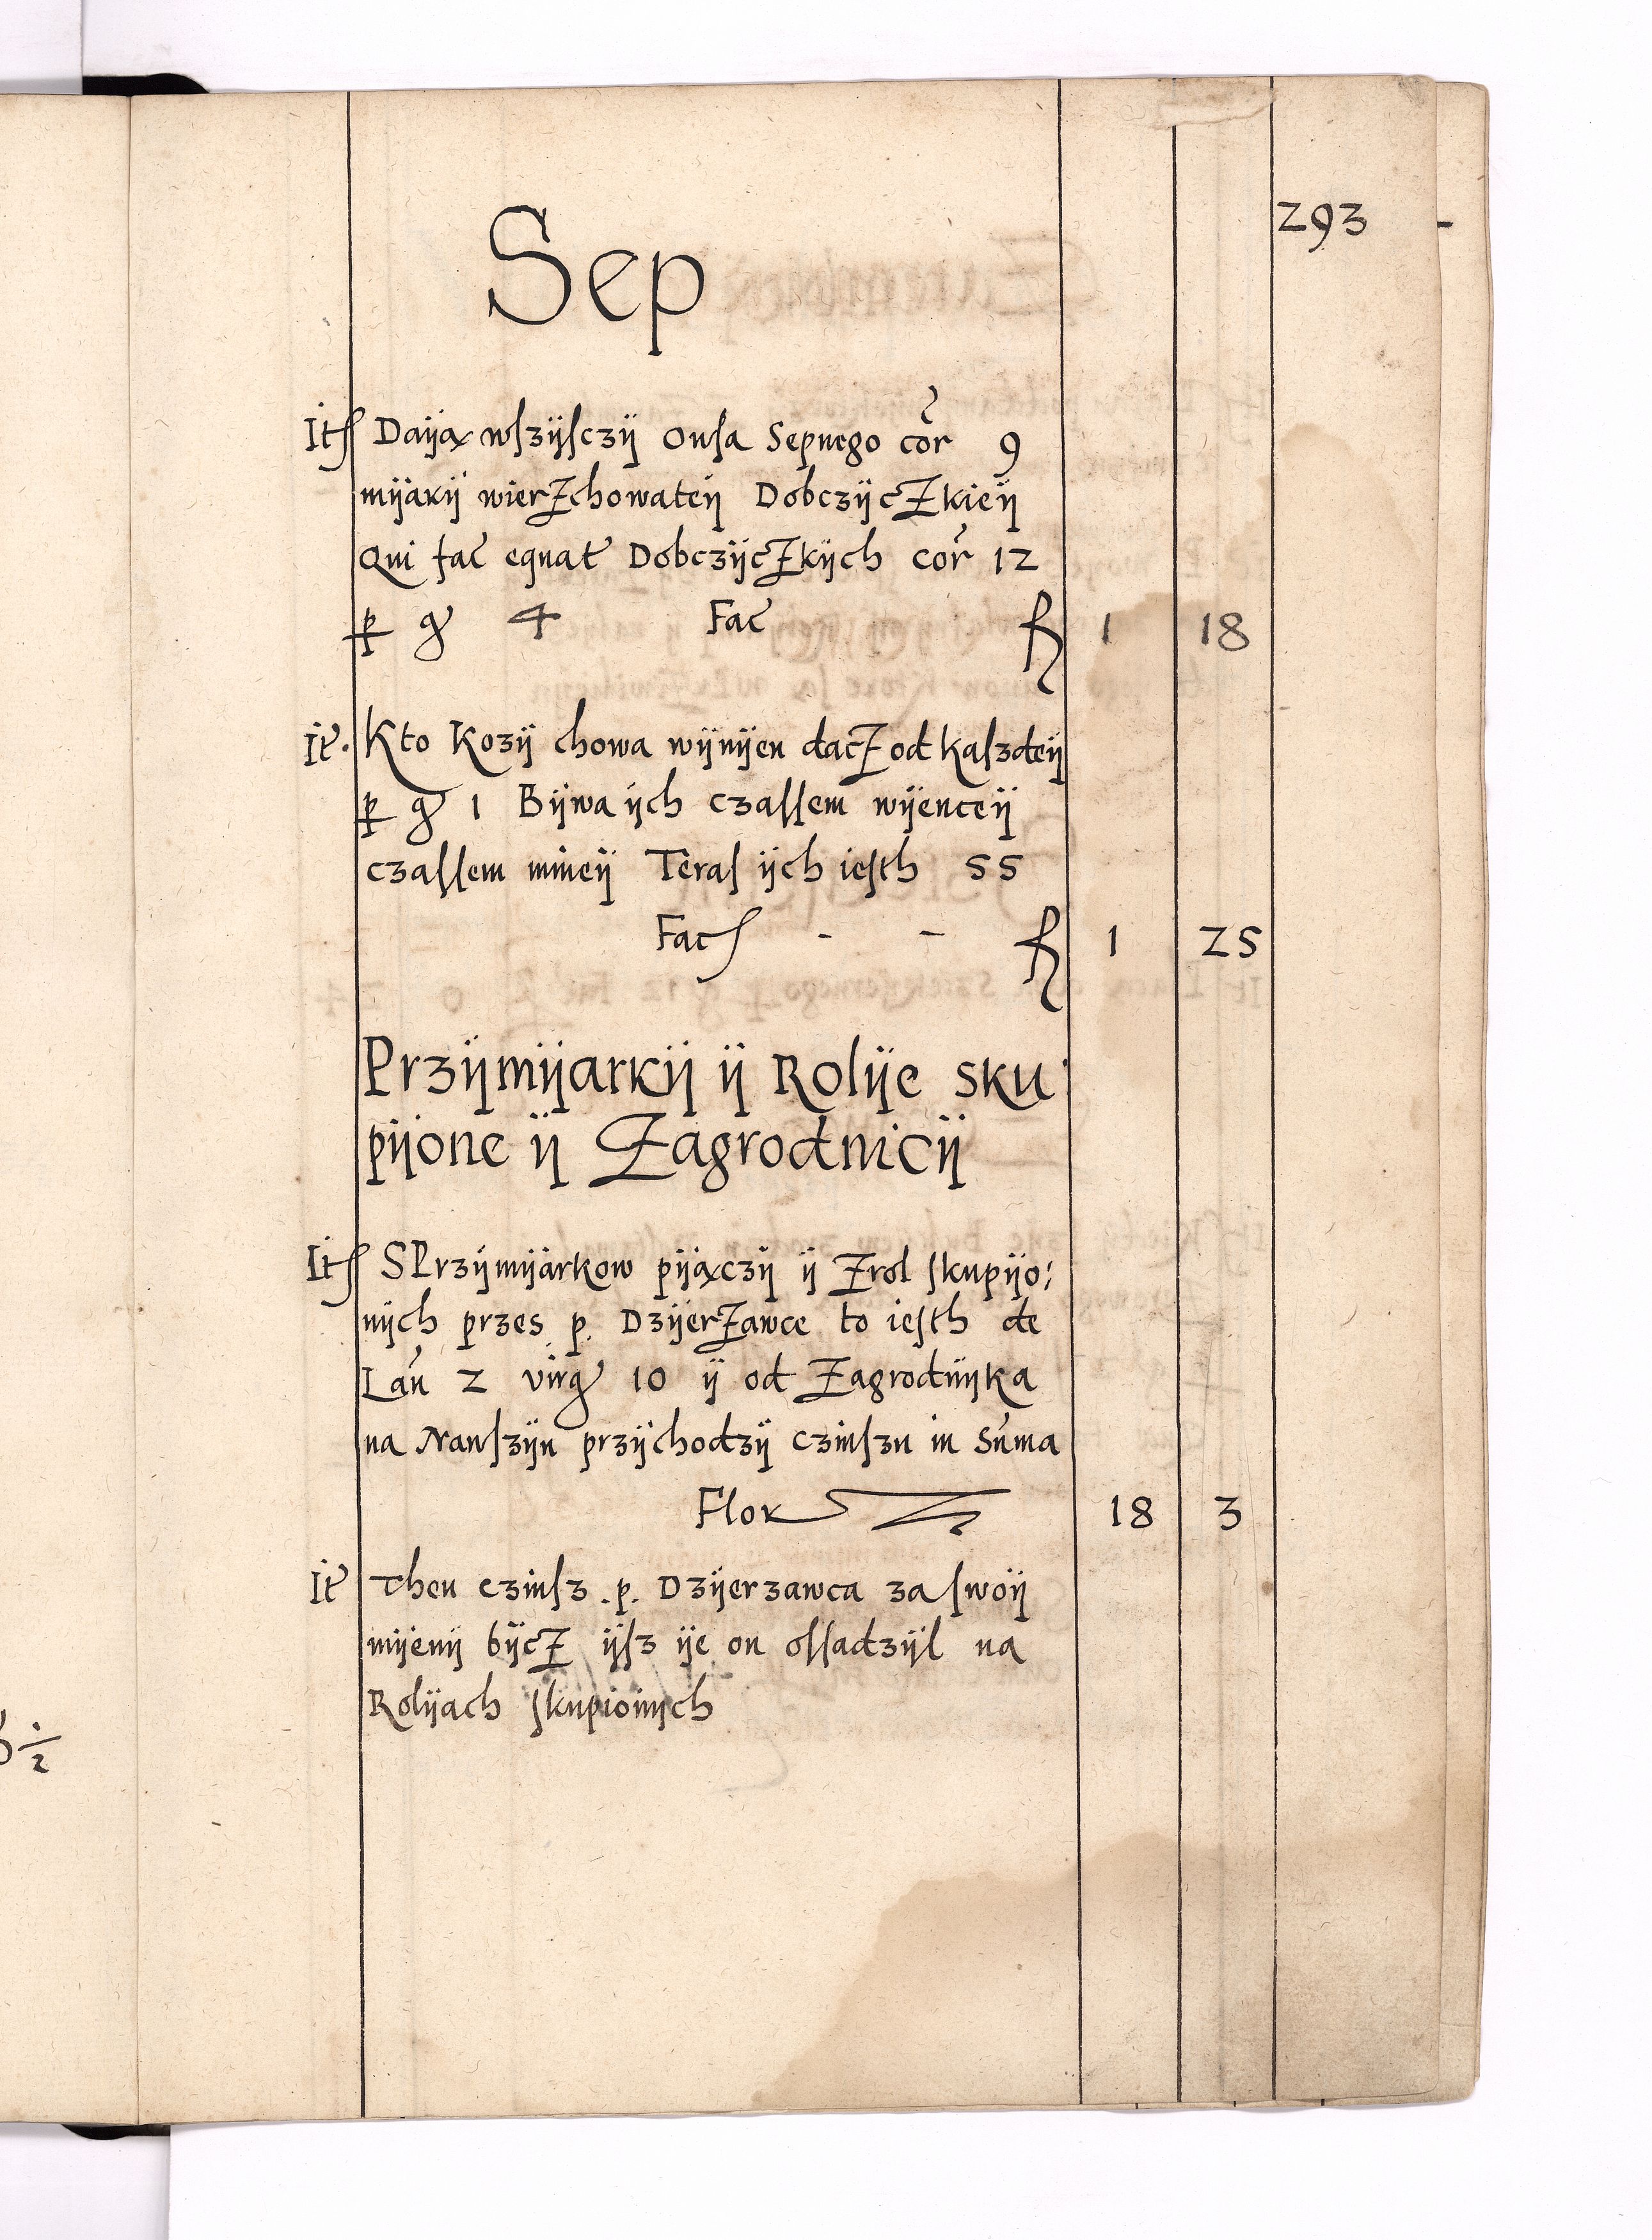 293
Sep
Itẽ Daiją wſzijſczij Owſa Sepnego cor̃ 9
mijarij wierzchowateij Dobczijczkieij
Qui fac̃ equat̃ Dobczijczkijch cor̃ 12
p gr̃ 4 Fac̃ fl 1 18
It̃. Kto Kozij chowa wijnijen dacz od kaſzdeij
p gr̃ 1 Bijwa ijch czaſſem wijenceij
czaſſem mneij Teraſ ijch ieſth 55
Fac̃ - - fl 1 25
Przijmijarkij ij Rolije sku
pijone ij Zagrodnicij
Itẽ SPrzijmijarkow pijączij ij Zrol ſkupijo:
nijch przes p. Dzijerzawce to ieſth de
Lan̄ 2 virg̃ 10 ij od Zagrodnijka
na Nawſzijn przijchodzij czinſzu in Sum̄a
Flor 18 3
It̃ Then czinſz .p. Dzijerzawca za ſwoij
mijenij bijcz ijſz ije on oſſadzijl na
Rolijach ſkupionijch